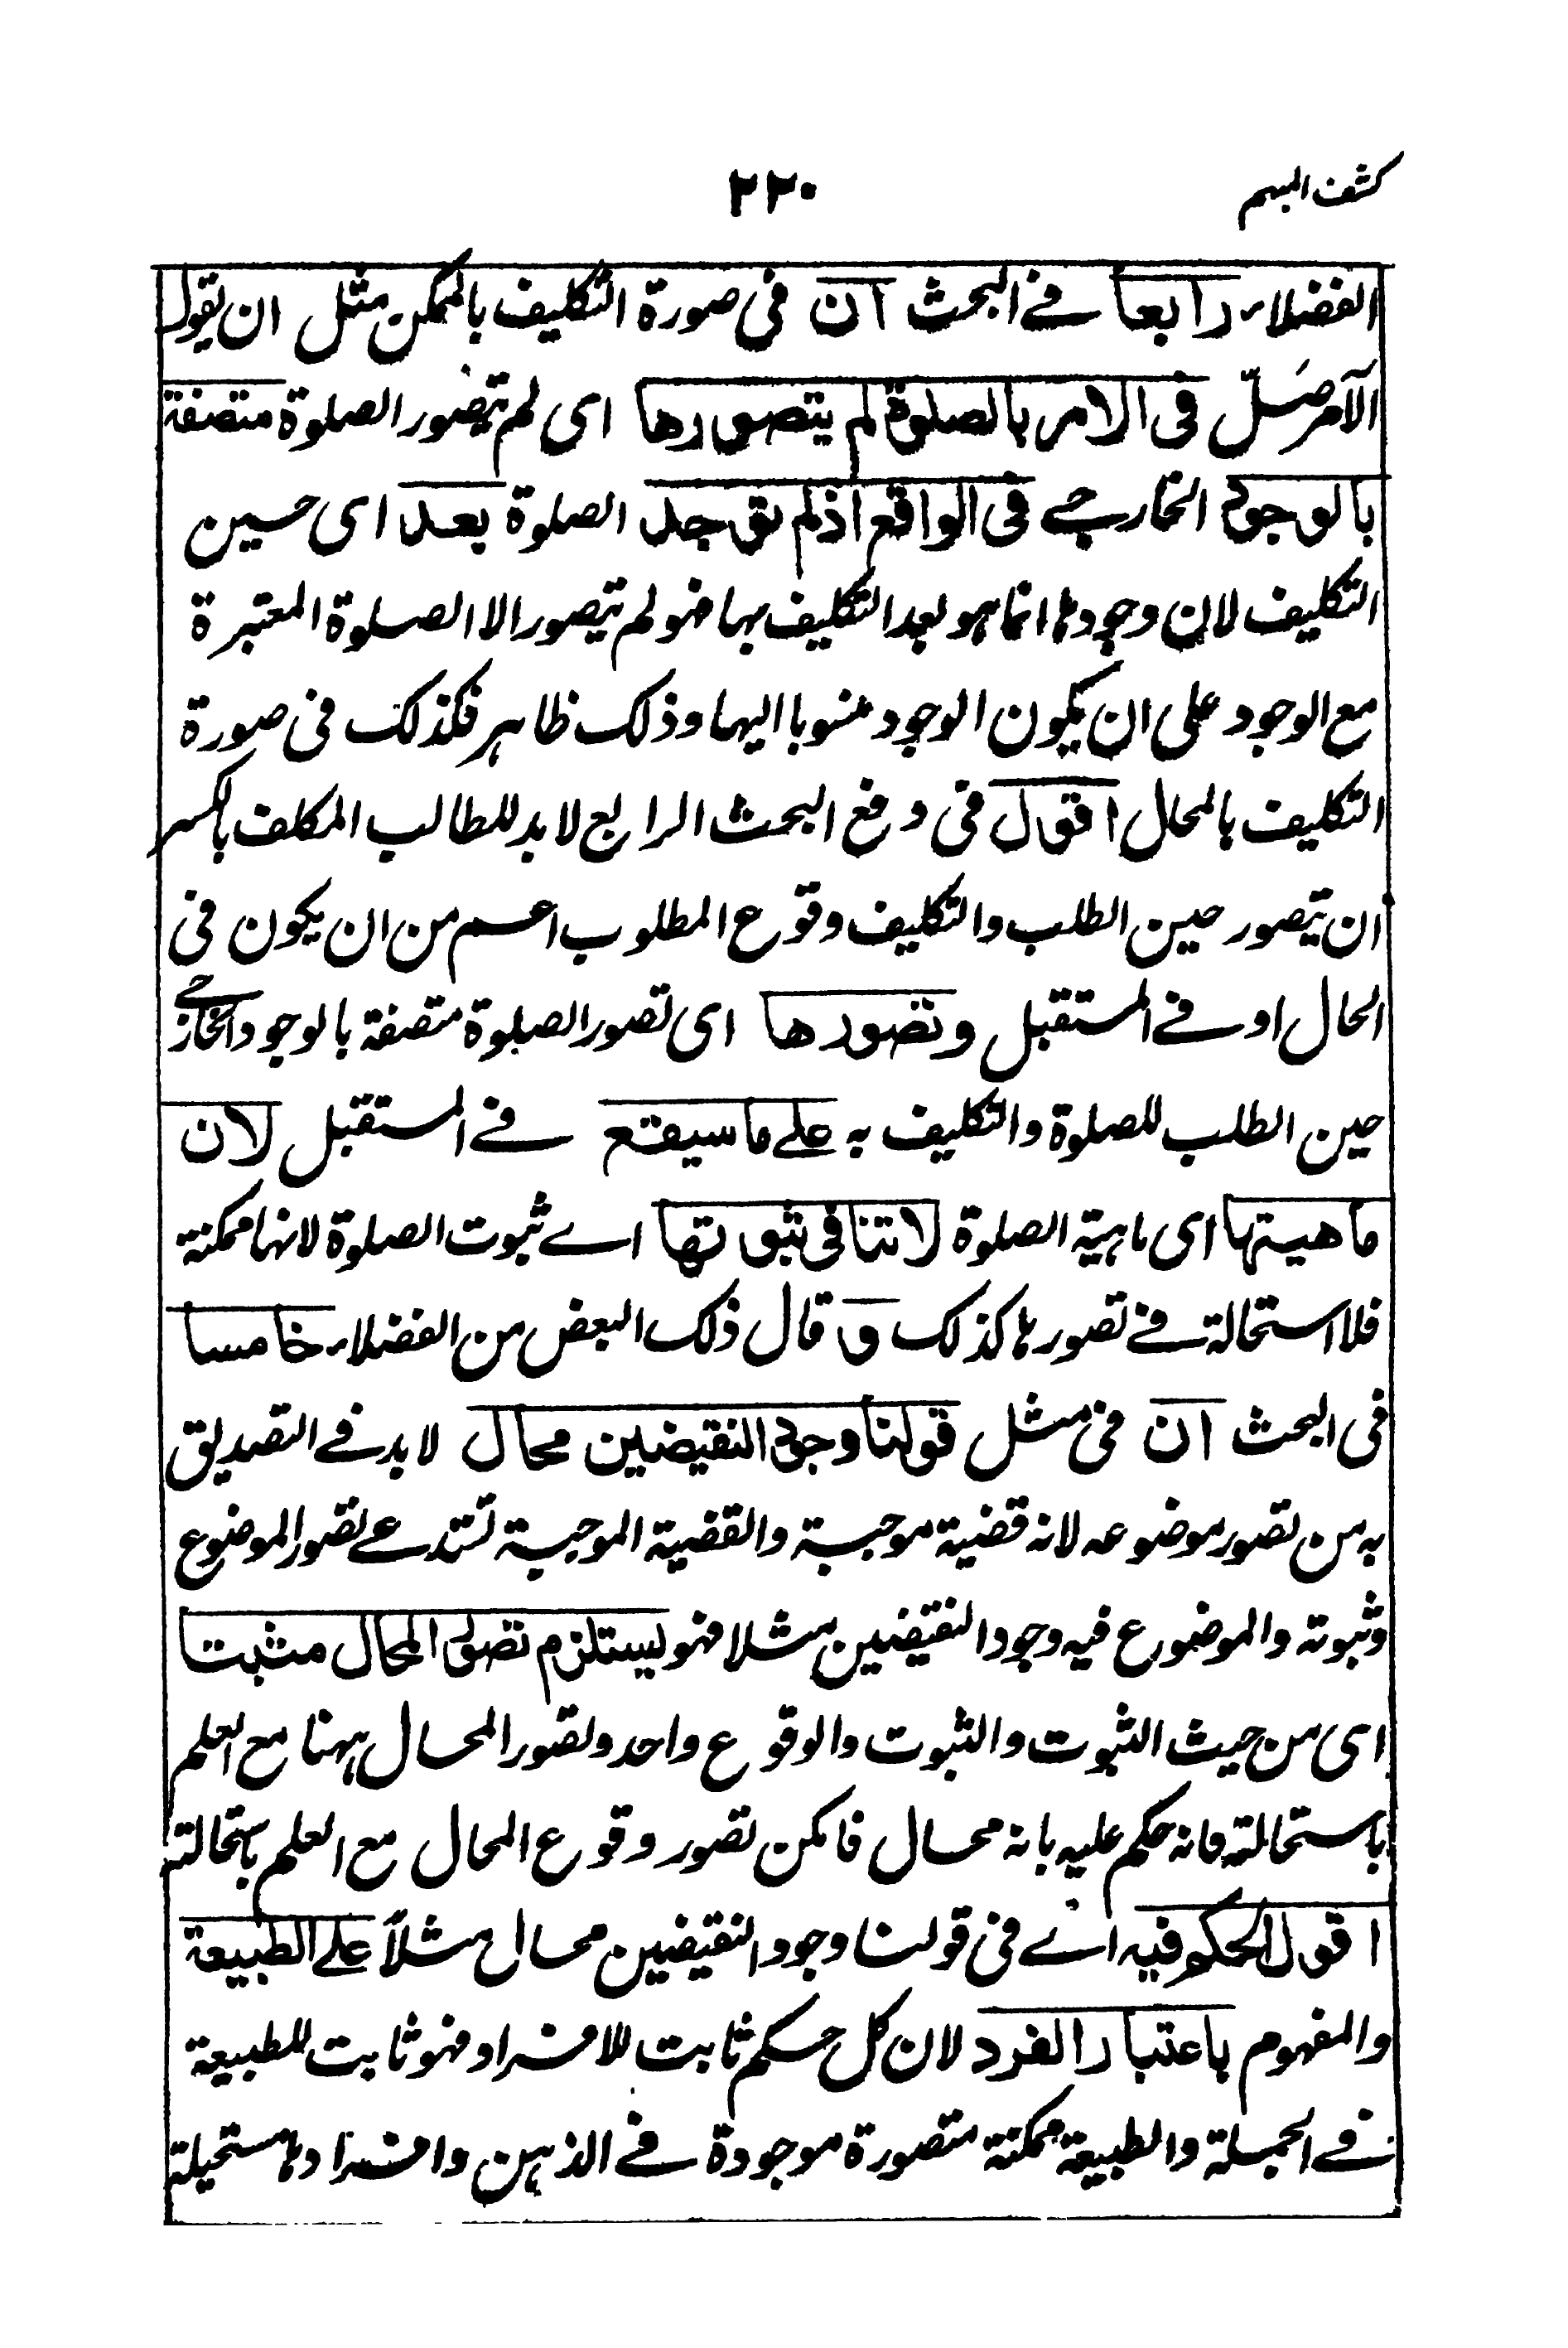 كشف المبهم
٢٢٠
الفضلاء رابعا في البحث ان في صورة التكليف بالممكن مثل ان يقول
الآمر صَلّ في الامر بالصلوة لم يتصورها اى لم يتصور الصلوة متصفة
بالوجود الخارجي في الواقع اذ لم توجد الصلوة بعد اى حين
التكليف لان وجودها انما هو بعد التكليف بها فهو لم يتصور الا الصلوة المعتبرة
مع الوجود على ان يكون الوجود منسوبا اليها وذلك ظاهر فكذلك في صورة
التكليف بالمحال اقول في دفع البحث الرابع لابد للطالب المكلف بالكسر
ان يتصور حين الطلب والتكليف وقوع المطلوب اعم من ان يكون في
الحال او في المستقبل وتصورها اى تصور الصلوة متصفة بالوجود الخارجي
حين الطلب للصلوة والتكليف به على ما سيقع في المستقبل لان
ماهيتها اى ماهية الصلوة لا تنافى ثبوتها اے ثبوت الصلوة لانها ممكنة
فلا استحالة في تصورها كذلك و قال ذلك البعض من الفضلاء خامسا
في البحث ان في مثل قولنا وجود النقيضين محال لابد في التصديق
به من تصور موضوعه لانه قضية موجبة والقضية الموجبة تستدعي تصور الموضوع
وثبوته والموضوع فيه وجود النقيضين مثلا فهو يستلزم تصور المحال مثبتا
اى من حيث الثبوت والثبوت والوقوع واحد وتصور المحال ههنا مع العلم
باستحالته فانه حكم عليه بانه محال فامكن تصور وقوع المحال مع العلم باستحالته
اقول الحكم فيه اے في قولنا وجود النقيضين محال مثلاً على الطبيعة
والمفهوم باعتبار الفرد لان كل حكم ثابت للافراد فهو ثابت للطبيعة
في الجملة والطبيعة ممكنة متصورة موجودة في الذهن وافرادها مستحيلة